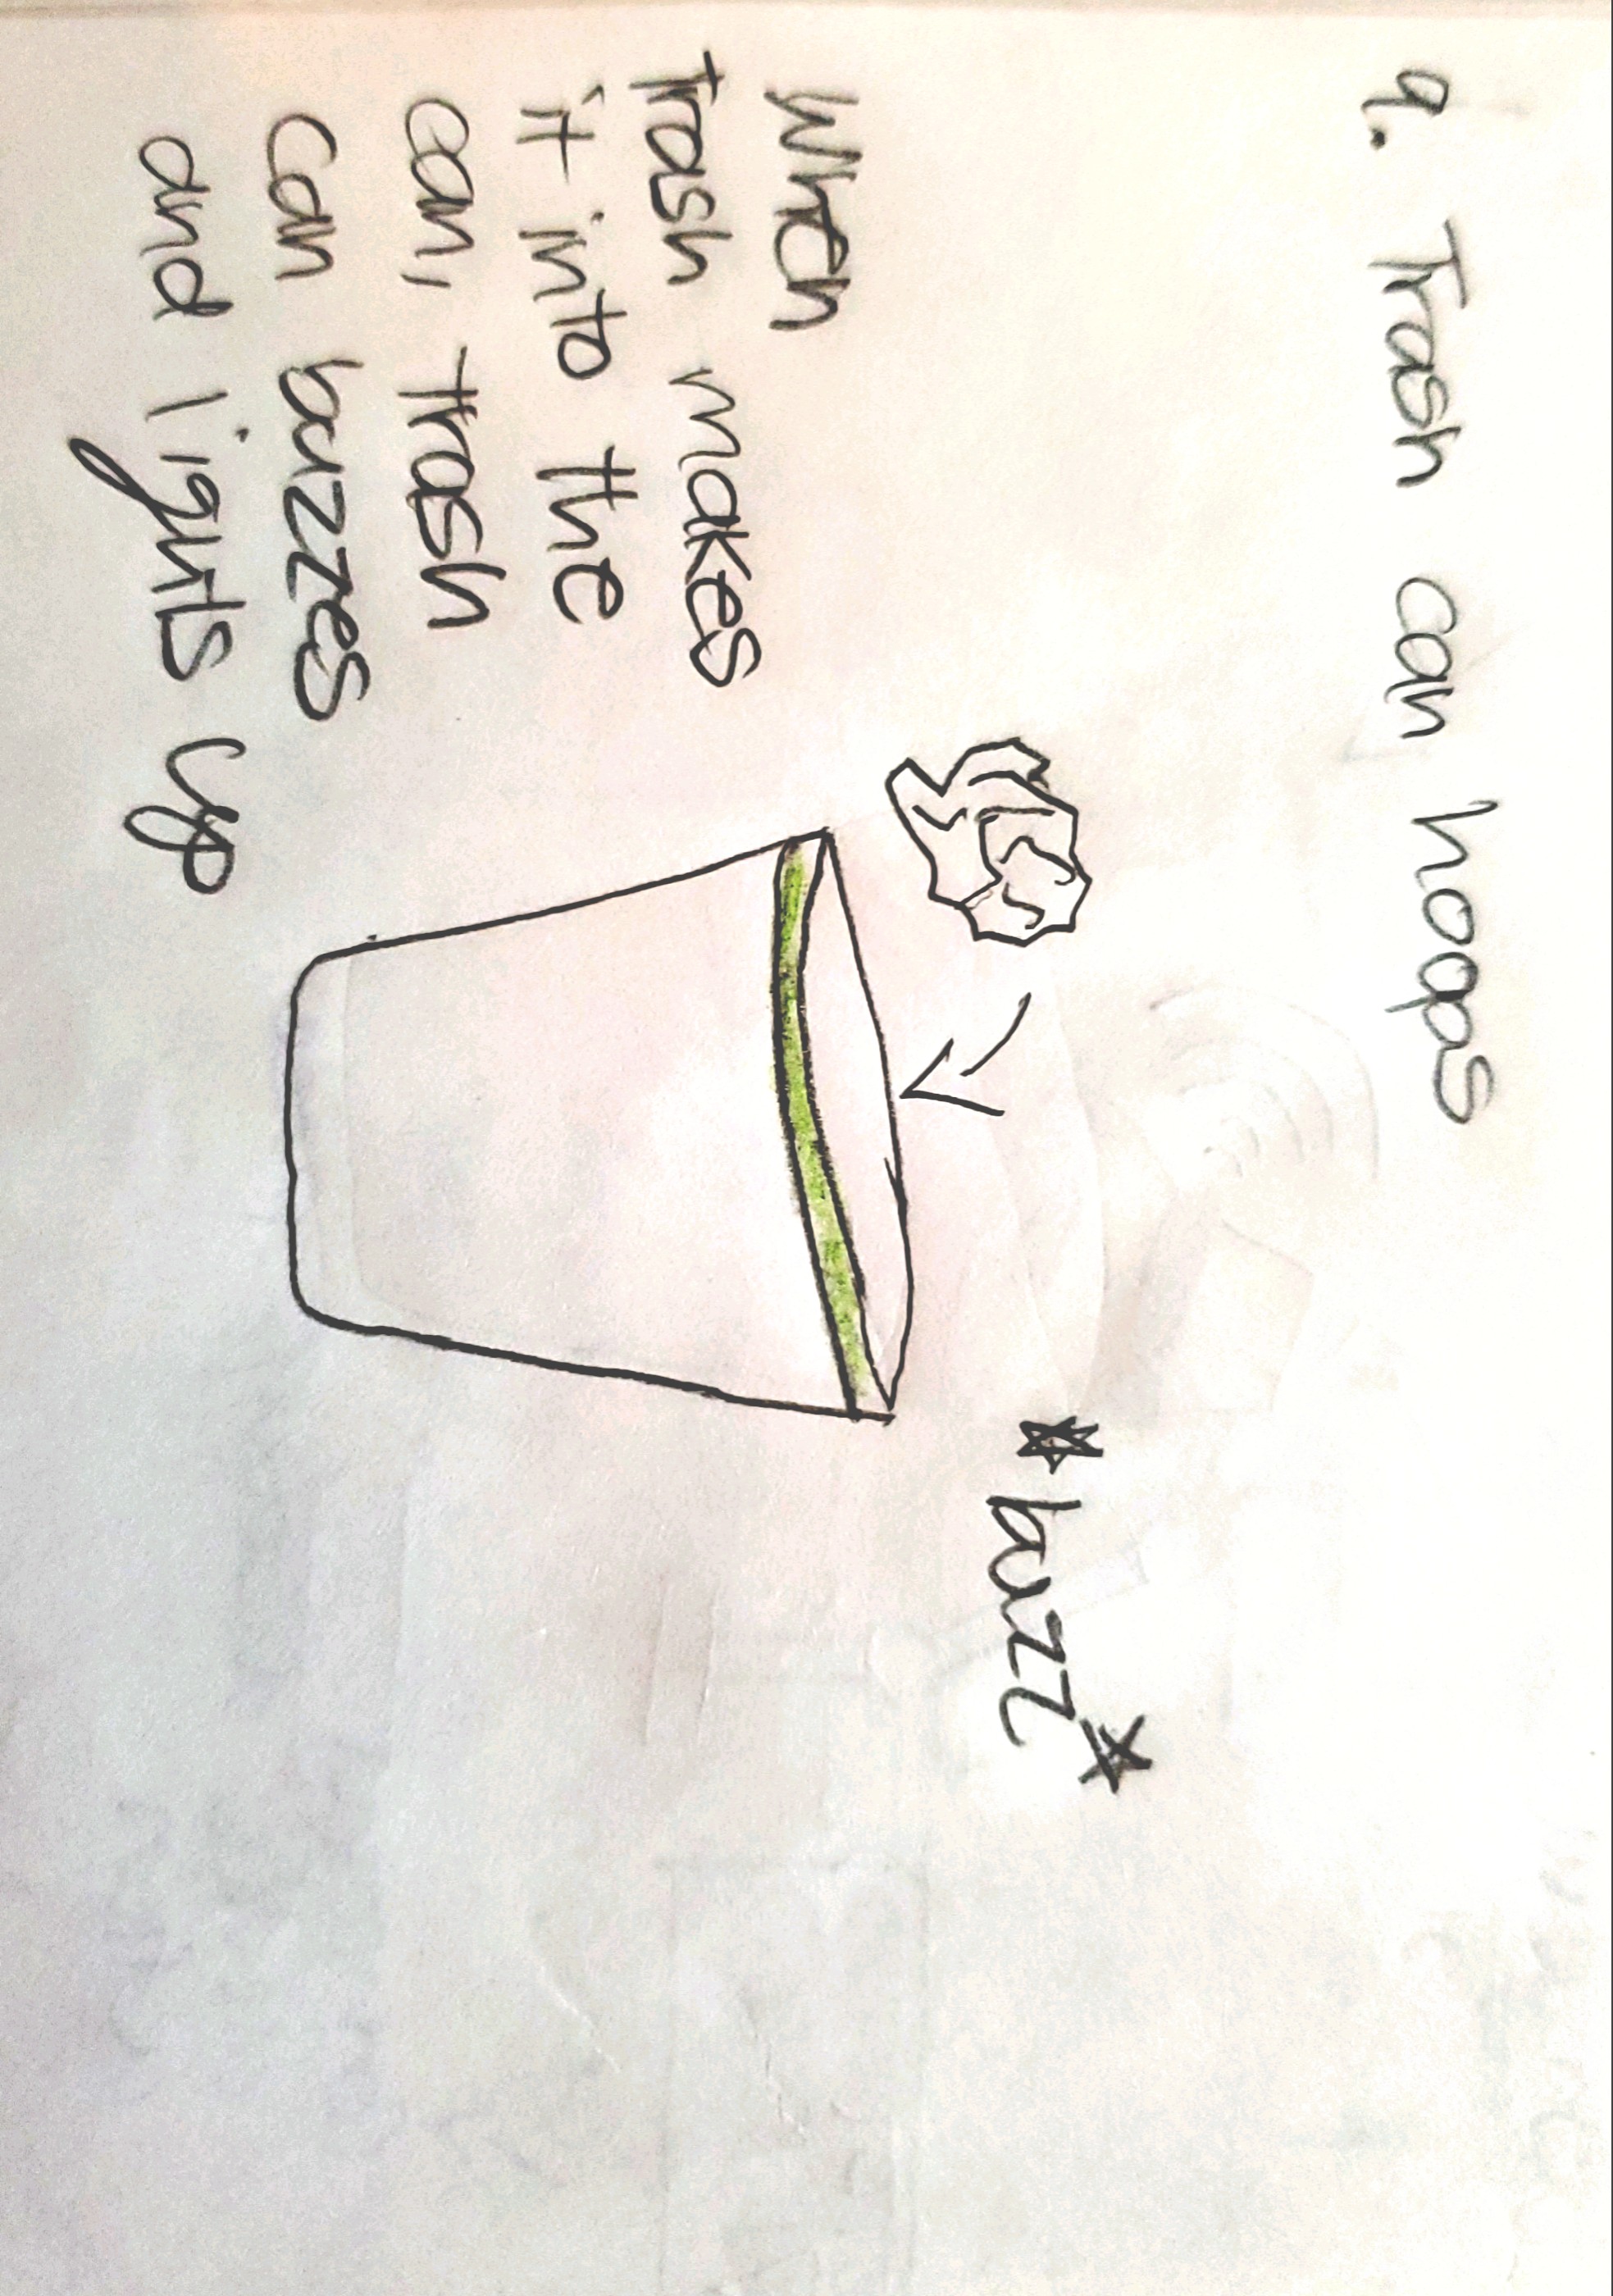 9. Trash can hoops
*buzz*
When
Trash makes
it into the
can, trash
can buzzes
and lights up